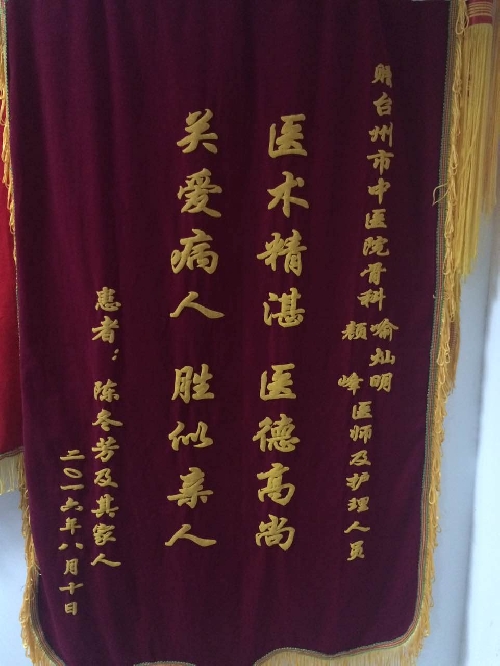 赠台州市中医院骨科喻灿明
颜峰医师及护理人员
医术精湛 医德高尚
关爱病人 胜似亲人
患者：陈冬芳及其家人
二〇一六年八月十日